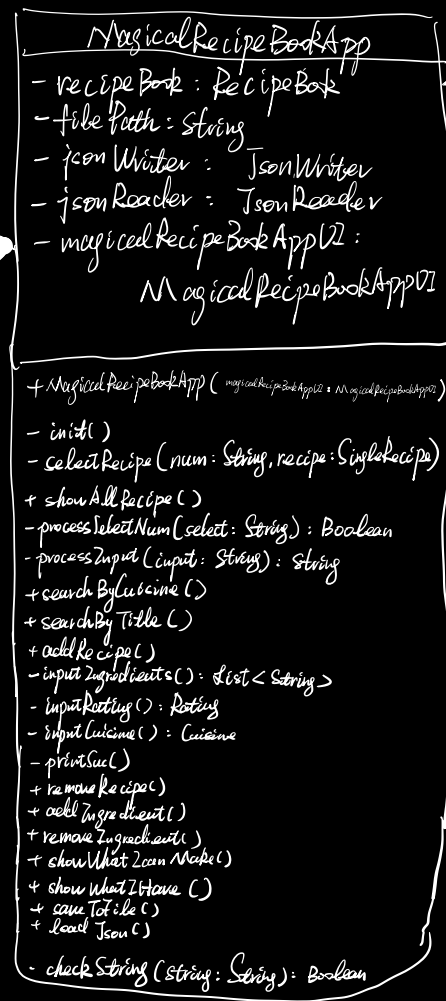 MagicalRecipeBookApp
- recipeBook : RecipeBook
- filePath : String
- jsonWriter : JsonWriter
- jsonReader : JsonReader
- magicalRecipeBookAppUI :
MagicalRecipeBookAppUI
+ MagicalRecipeBookApp( magicalRecipeBookAppUI : MagicalRecipeBookAppUI)
- init()
- selectRecipe(num: String, recipe: SingleRecipe)
+ showAllRecipe()
- processSelectNum(select: String) : Boolean
- processInput(input: String) : String
+ searchByCuisine()
+ searchByTitle()
+ addRecipe()
- inputIngredients() : List<String>
- inputRating() : Rating
- inputCuisine() : Cuisine
- printSuc()
+ removeRecipe()
+ addIngredient()
+ removeIngredient()
+ showWhatIcanMake()
+ showWhatIHave()
+ saveToFile()
+ loadJson()
- checkString(string: String) : Boolean